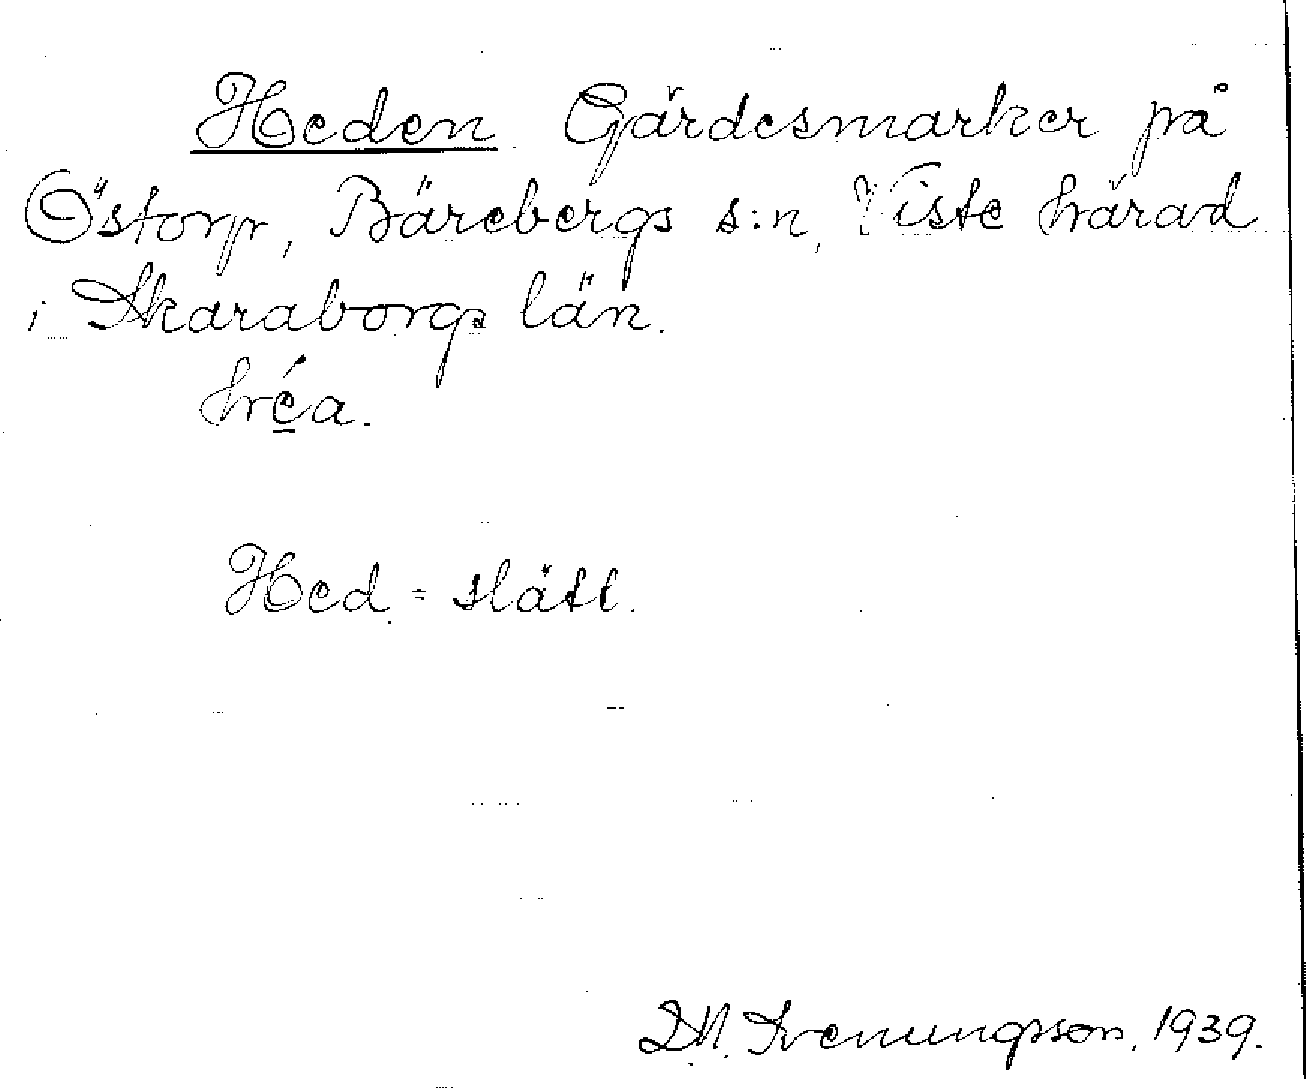 Heden Gärdesmarker på
Östorp, Bärebergs s:n, Viste härad
i Skaraborgs län.
héa.
Hed = slätt.
D.N. Svenungsson. 1939.